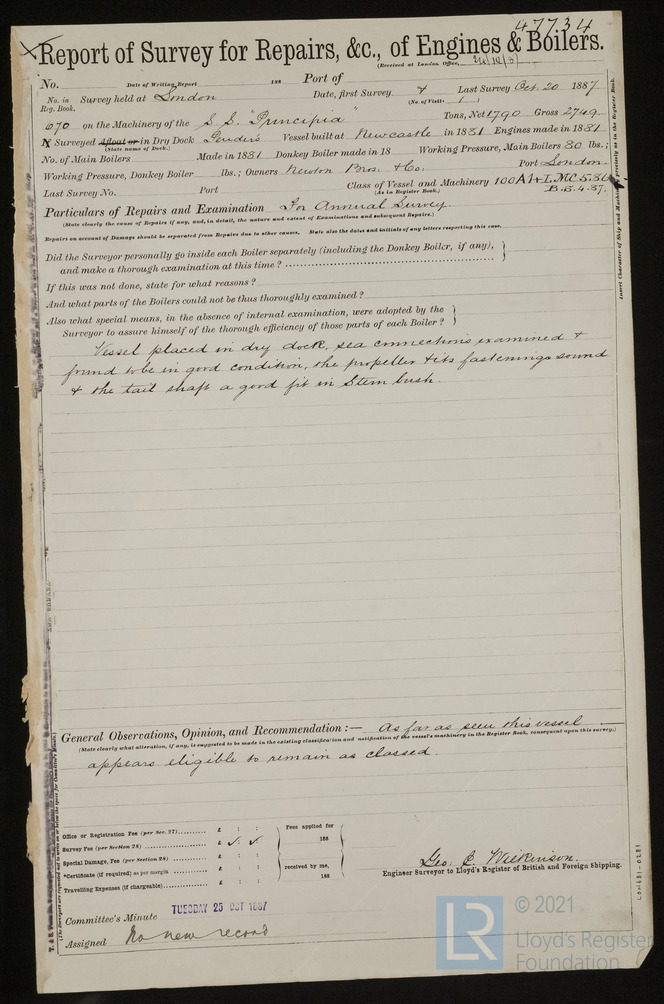 47734
Report of Survey for Repairs, &c., of Engines & Boilers.
(Received at London Office,
No. Date of Writing Report 188 Port of
No. in Reg. Book. Survey held at London Date, first Survey & Last Survey Oct. 20 1887
(No. of Visits 1 )
670 on the Machinery of the S.S. "Principia" Tons, Net 1790 Gross 2749
Surveyed Afloat or in Dry Dock Vessel built at Newcastle in 1881 Engines made in 1881
(State name of Dock.)
No. of Main Boilers Made in 1881 Donkey Boiler made in 18 Working Pressure, Main Boilers 80 lbs.;
Working Pressure, Donkey Boiler lbs.; Owners Newton Bros. & Co. Port London
Last Survey No. Port Class of Vessel and Machinery 100A1 + L.M.C. 5.86
(As in Register Book.) B.S. 4.87.
Particulars of Repairs and Examination For Annual Survey.
(State clearly the cause of Repairs if any, and, in detail, the nature and extent of Examinations and subsequent Repairs.)
Repairs on account of Damage should be separated from Repairs due to other causes. State also the dates and initials of any letters respecting this case.
Did the Surveyor personally go inside each Boiler separately (including the Donkey Boiler, if any), }
and make a thorough examination at this time?
If this was not done, state for what reasons?
And what parts of the Boilers could not be thus thoroughly examined?
Also what special means, in the absence of internal examination, were adopted by the }
Surveyor to assure himself of the thorough efficiency of those parts of each Boiler?
Vessel placed in dry dock, sea connections examined &
found to be in good condition, the propeller & its fastenings sound
& the tail shaft a good fit in Stern bush.
General Observations, Opinion, and Recommendation :— As far as seen this vessel
(State clearly what alteration, if any, is suggested to be made in the existing classification and notification of the vessel's machinery in the Register Book, consequent upon this survey.)
appears eligible to remain as classed.
Office or Registration Fee (per Sec. 27) £ : : Fees applied for
Survey Fee (per Section 28) £ : : 188
Special Damage, Fee (per Section 28) £ : :
*Certificate (if required) as per margin £ : : received by me,
Travelling Expenses (if chargeable) £ : : 188
Geo. C. Wilkinson.
Engineer Surveyor to Lloyd's Register of British and Foreign Shipping.
Committee's Minute TUESDAY 25 OCT 1887
Assigned No new record
LR © 2021
Lloyd's Register
Foundation